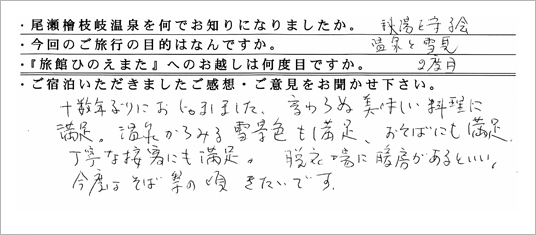 ・尾瀬檜枝岐温泉を何でお知りになりましたか。 秘湯を守る会
・今回のご旅行の目的はなんですか。 温泉と雪見
・『旅館ひのえまた』へのお越しは何度目ですか。 2度目
・ご宿泊いただきましたご感想・ご意見をお聞かせ下さい。
十数年ぶりにおじゃましました、変わらぬ美味しい料理に
満足。温泉からみる雪景色も満足、おそばにも満足、
丁寧な接客にも満足。脱衣場に暖房があるといい。
今度はそば の頃 きたいです。